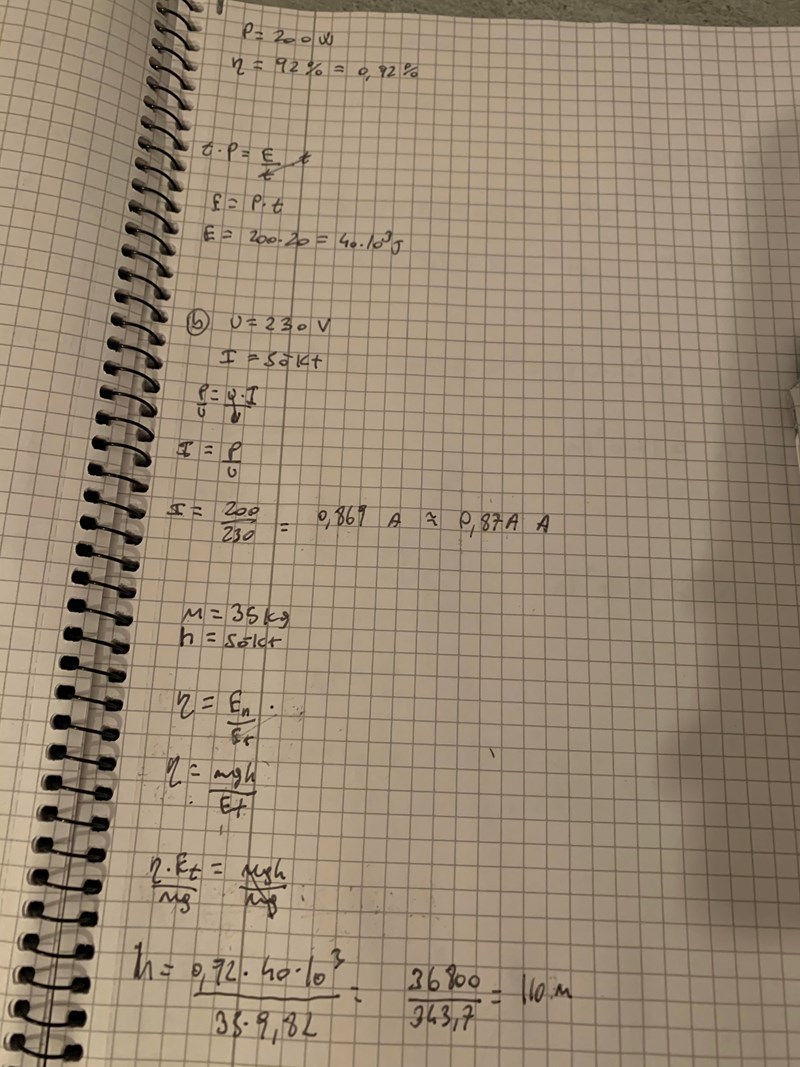 P = 200 W
η = 92 % = 0,92 %
t · P = E/t · t
E = P · t
E = 200 · 20 = 40 · 10³ J
(b) U = 230 V
I = sökt
P/U = U · I/U
I = P/U
I = 200/230 = 0,869 A ≈ 0,87A A
m = 35 kg
h = sökt
η = En/Et ·
η = mgh/Et
η · Et/mg = mgh/mg
h = 0,92 · 40 · 10³/35 · 9,82 = 36800/343,7 = 110 m